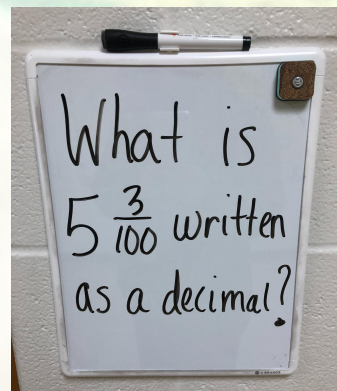 What is
5 3/100 written
as a decimal?